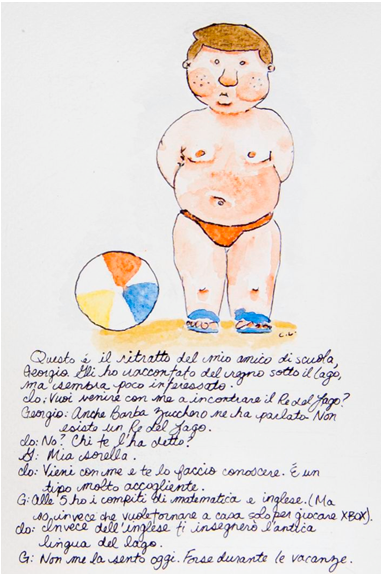 C.V.
Questo é il ritratto del mio amico di scuola,
Georgio. Gli ho raccontato del regno sotto il lago,
ma sembra poco interessato.
Io: Vuoi venire con me a incontrare il Re del Lago?
Georgio: Anche Barba Zucchero me ha parlato. Non
esiste un Re del Lago.
Io: No? Chi te l'ha detto?
G: Mia sorella.
Io: Vieni con me e te lo faccio conoscere. È un
tipo molto accogliente.
G: Alle 5 ho i compiti di matematica e inglese. (Ma
so, invece che vuole tornare a casa solo per giocare XBOX).
Io: Invece dell'inglese ti insegnerò l'antica
lingua del lago.
G: Non me la sento oggi. Forse durante le vacanze.